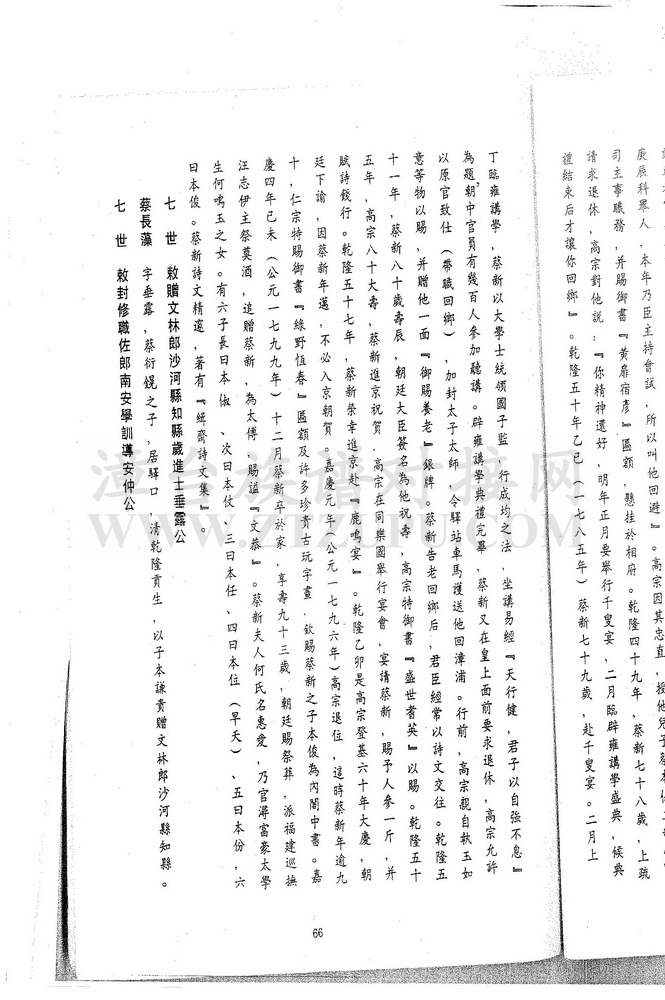 庚辰科舉人，本年乃臣主持會試，所以本臣回避』。高宗因其忠直，授他兒子蔡本俶
司主事職務，并賜御書『黃扉宿彥』匾額，懸挂於相府。乾隆四十九年，蔡新七十八歲，上疏
請求退休，高宗對他説：『你精神還好，明年正月要舉行千叟宴，二月臨辟雍講學盛典，候典
禮結束后才讓你回鄉』。乾隆五十年乙巳（公元一七八五年）蔡新七十九歲，赴千叟宴。二月上
丁臨雍講學，蔡新以大學士統領國子監，行成均之法，坐講易經『天行健，君子以自強不息』
為題，朝中官員有幾百人參加聽講。辟雍講學典禮完畢，蔡新又在皇上面前要求退休，高宗允許
以原官致仕（帶職回鄉），加封太子太師，令驛站車馬護送他回漳浦。行前，高宗親自執玉如
意等物以賜，并贈他一面『御賜養老』銀牌。蔡新告老回鄉后，君臣經常以詩文交往。乾隆五
十一年，蔡新八十歲壽辰，朝廷大臣簽名為他祝壽，高宗特御書『盛世耆英』以賜。乾隆五十
五年，高宗八十大壽，蔡新進京祝賀，高宗在同樂國舉行宴會，宴請蔡新，賜予人參一斤，并
賦詩餞行。乾隆五十七年，蔡新榮幸進京赴『鹿鳴宴』。乾隆乙卯是高宗登基六十年大慶，朝
廷下諭，因蔡新年邁，不必入京朝賀。嘉慶元年（公元一七九六年）高宗退位，這時蔡新年逾九
十，仁宗特賜御書『綠野恆春』匾額及許多珍貴古玩字畫，欽賜蔡新之子本俊為內閣中書。嘉
慶四年己未（公元一七九九年）十二月蔡新卒於家，享壽九十三歲，朝廷賜祭葬，派福建巡撫
汪志伊主祭奠酒，追贈蔡新，為太傅，賜謚『文恭』。蔡新夫人何氏名惠愛，乃官潯富豪太學
生何鳴玉之女。有六子長曰本俶、次曰本伩，三曰本任、四曰本位（早夭）、五曰本份，六
曰本俊。蔡新詩文精邃，著有『緝齋詩文集』。
七世 敕贈文林郎沙河縣知縣歲進士垂露公
蔡長藻 字垂露，蔡衍鎤之子，居驛口，清乾隆貢生，以子本謙貴贈文林郎沙河縣知縣。
七世 敕封修職佐郎南安學訓導安仲公
66